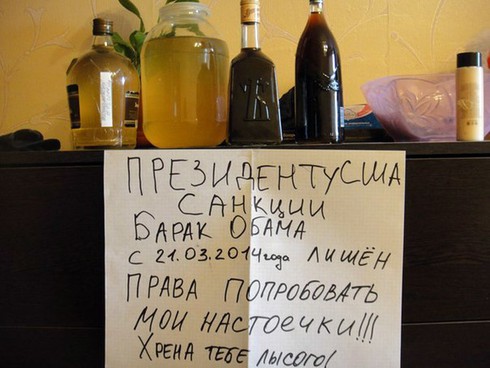 ПРЕЗИДЕНТУ США
САНКЦИИ
БАРАК ОБАМА
С 21.03.2014 года ЛИШЁН
ПРАВА ПОПРОБОВАТЬ
МОИ НАСТОЕЧКИ!!!
ХРЕНА ТЕБЕ ЛЫСОГО!